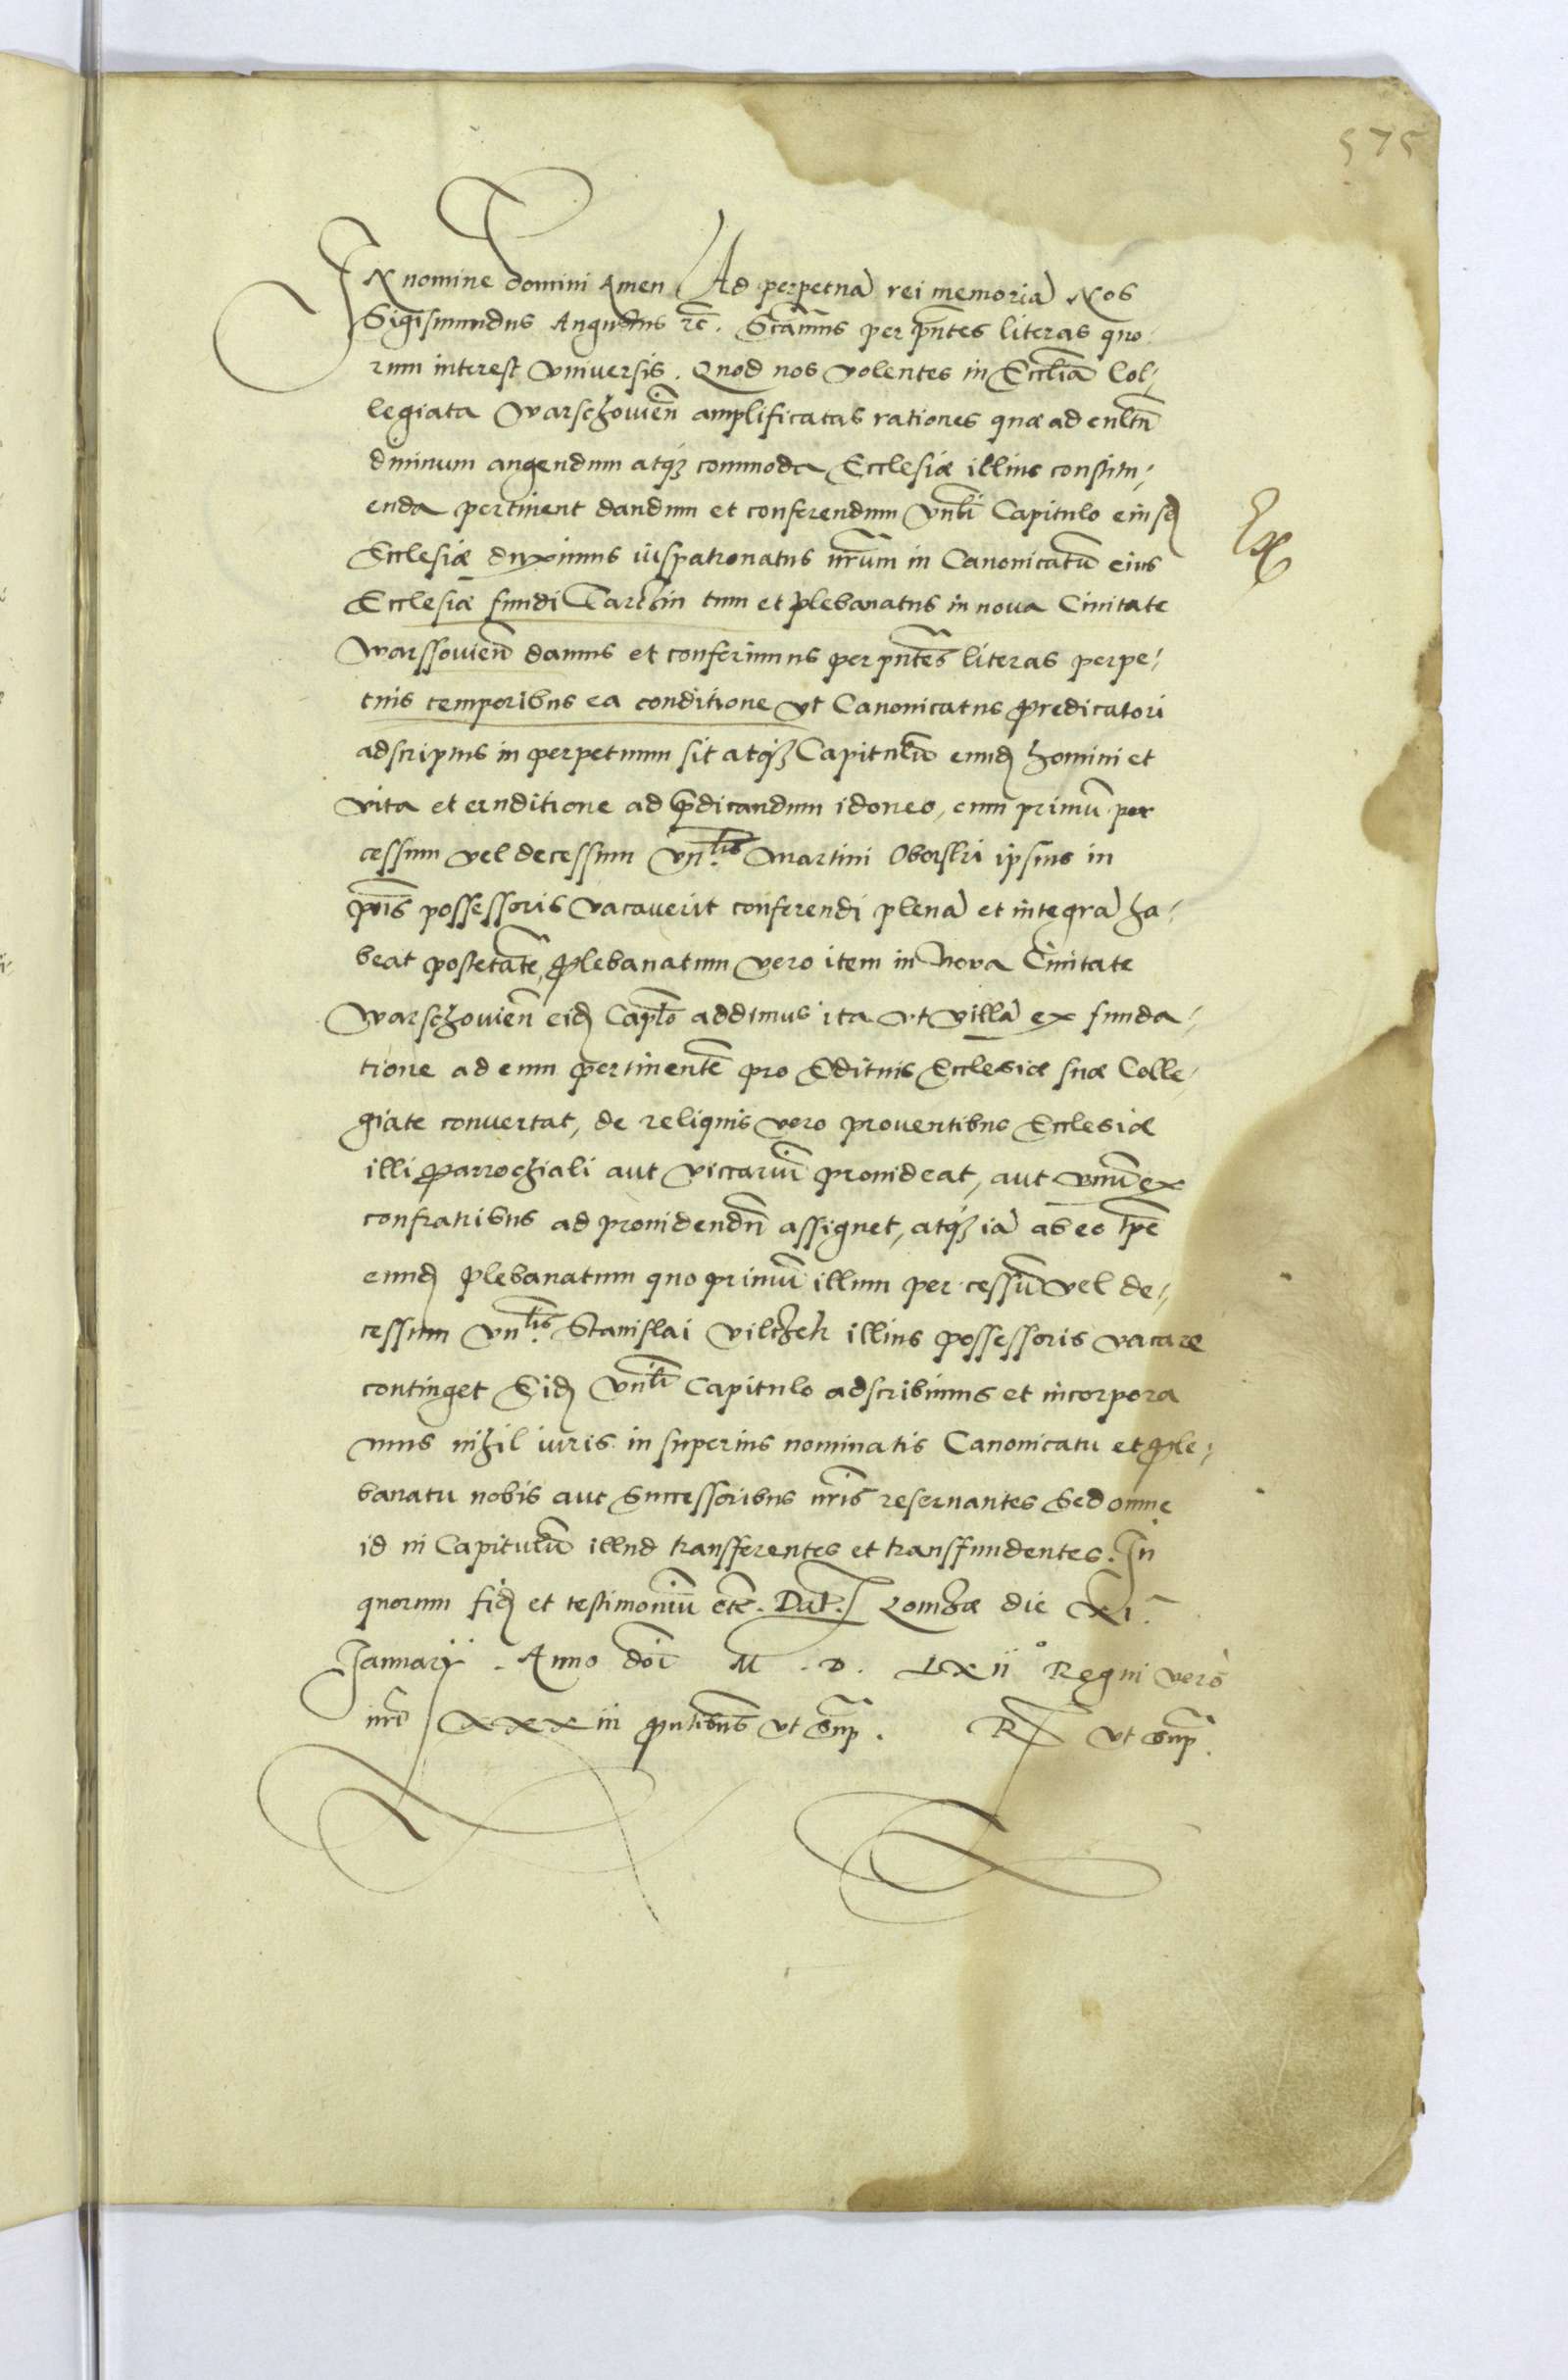 575
In nomine Domini Amen Ad perpetuā rei memoriā Nos
Sigismundus Augustus rc̄. Sc̄amus per pn̄tes literas quo-
rum interest vniuersis. Quod nos volentes in Eccl̄iā Col-
legiata Warschowień amplificatas rationes quæ ad cultū
diuinum augendum atq̨ commoda Ecclesiæ illius constitu-
enda pertinent dandum et conferendum Vn̄bli Capitulo eiusđ
Ecclesiæ duximus iuspatronatus nr̄um in Canonicatū eius
Ecclesiæ fundi Tarchin tum et Plebanatus in noua Ciuitate
Warssouień damus et conferimus per pn̄tes literas perpe-
tuis temporibus ea conditione vt Canonicatus Predicatori
adscriptus in perpetuum sit atq̨ Capitulū eumđ homini et
vita et eruditione ad p̄dicandum idoneo, cum primū per
cessum vel decessum Vn.lis Martini Oborski ipsius in
pn̄s possessoris vacauerit conferendi plenā et integrā ha-
beat potestatē, Plebanatum vero item in Nova Ciuitate
Warschouień eiđ Caplō addimus ita vt villā ex funda-
tione ad eum pertinentē pro Edituis Ecclesiæ suæ Colle-
giate convertat, de reliquis vero prouentibus Ecclesiæ
illi Parrochiali aut viccariū prouideat, aut vnū ex
confratribus ad prouidendū assignet, atq̨ iā ab eo tp̄e
eumđ Plebanatum quo primū illum per cessū vel de-
cessum Vn.lis Stanislai Vilchek illius possessoris vacare
continget Eiđ Vn̄bli Capitulo adscribimus et incorpora
mus nihil iuris in superius nominatis Canonicatu et Ple-
banatu nobis aut Successoribus nr̄is reseruantes Sed omne
id in Capitulū illud transferentes et transfundentes. In
quorum fiđ et testimoniū etc̄. Dat. Lomzæ die XI
Januarij. Anno doī M. D. LXII° Regni vero
nr̄i XXXIII pn̄tibus vt sup. R vt sup.